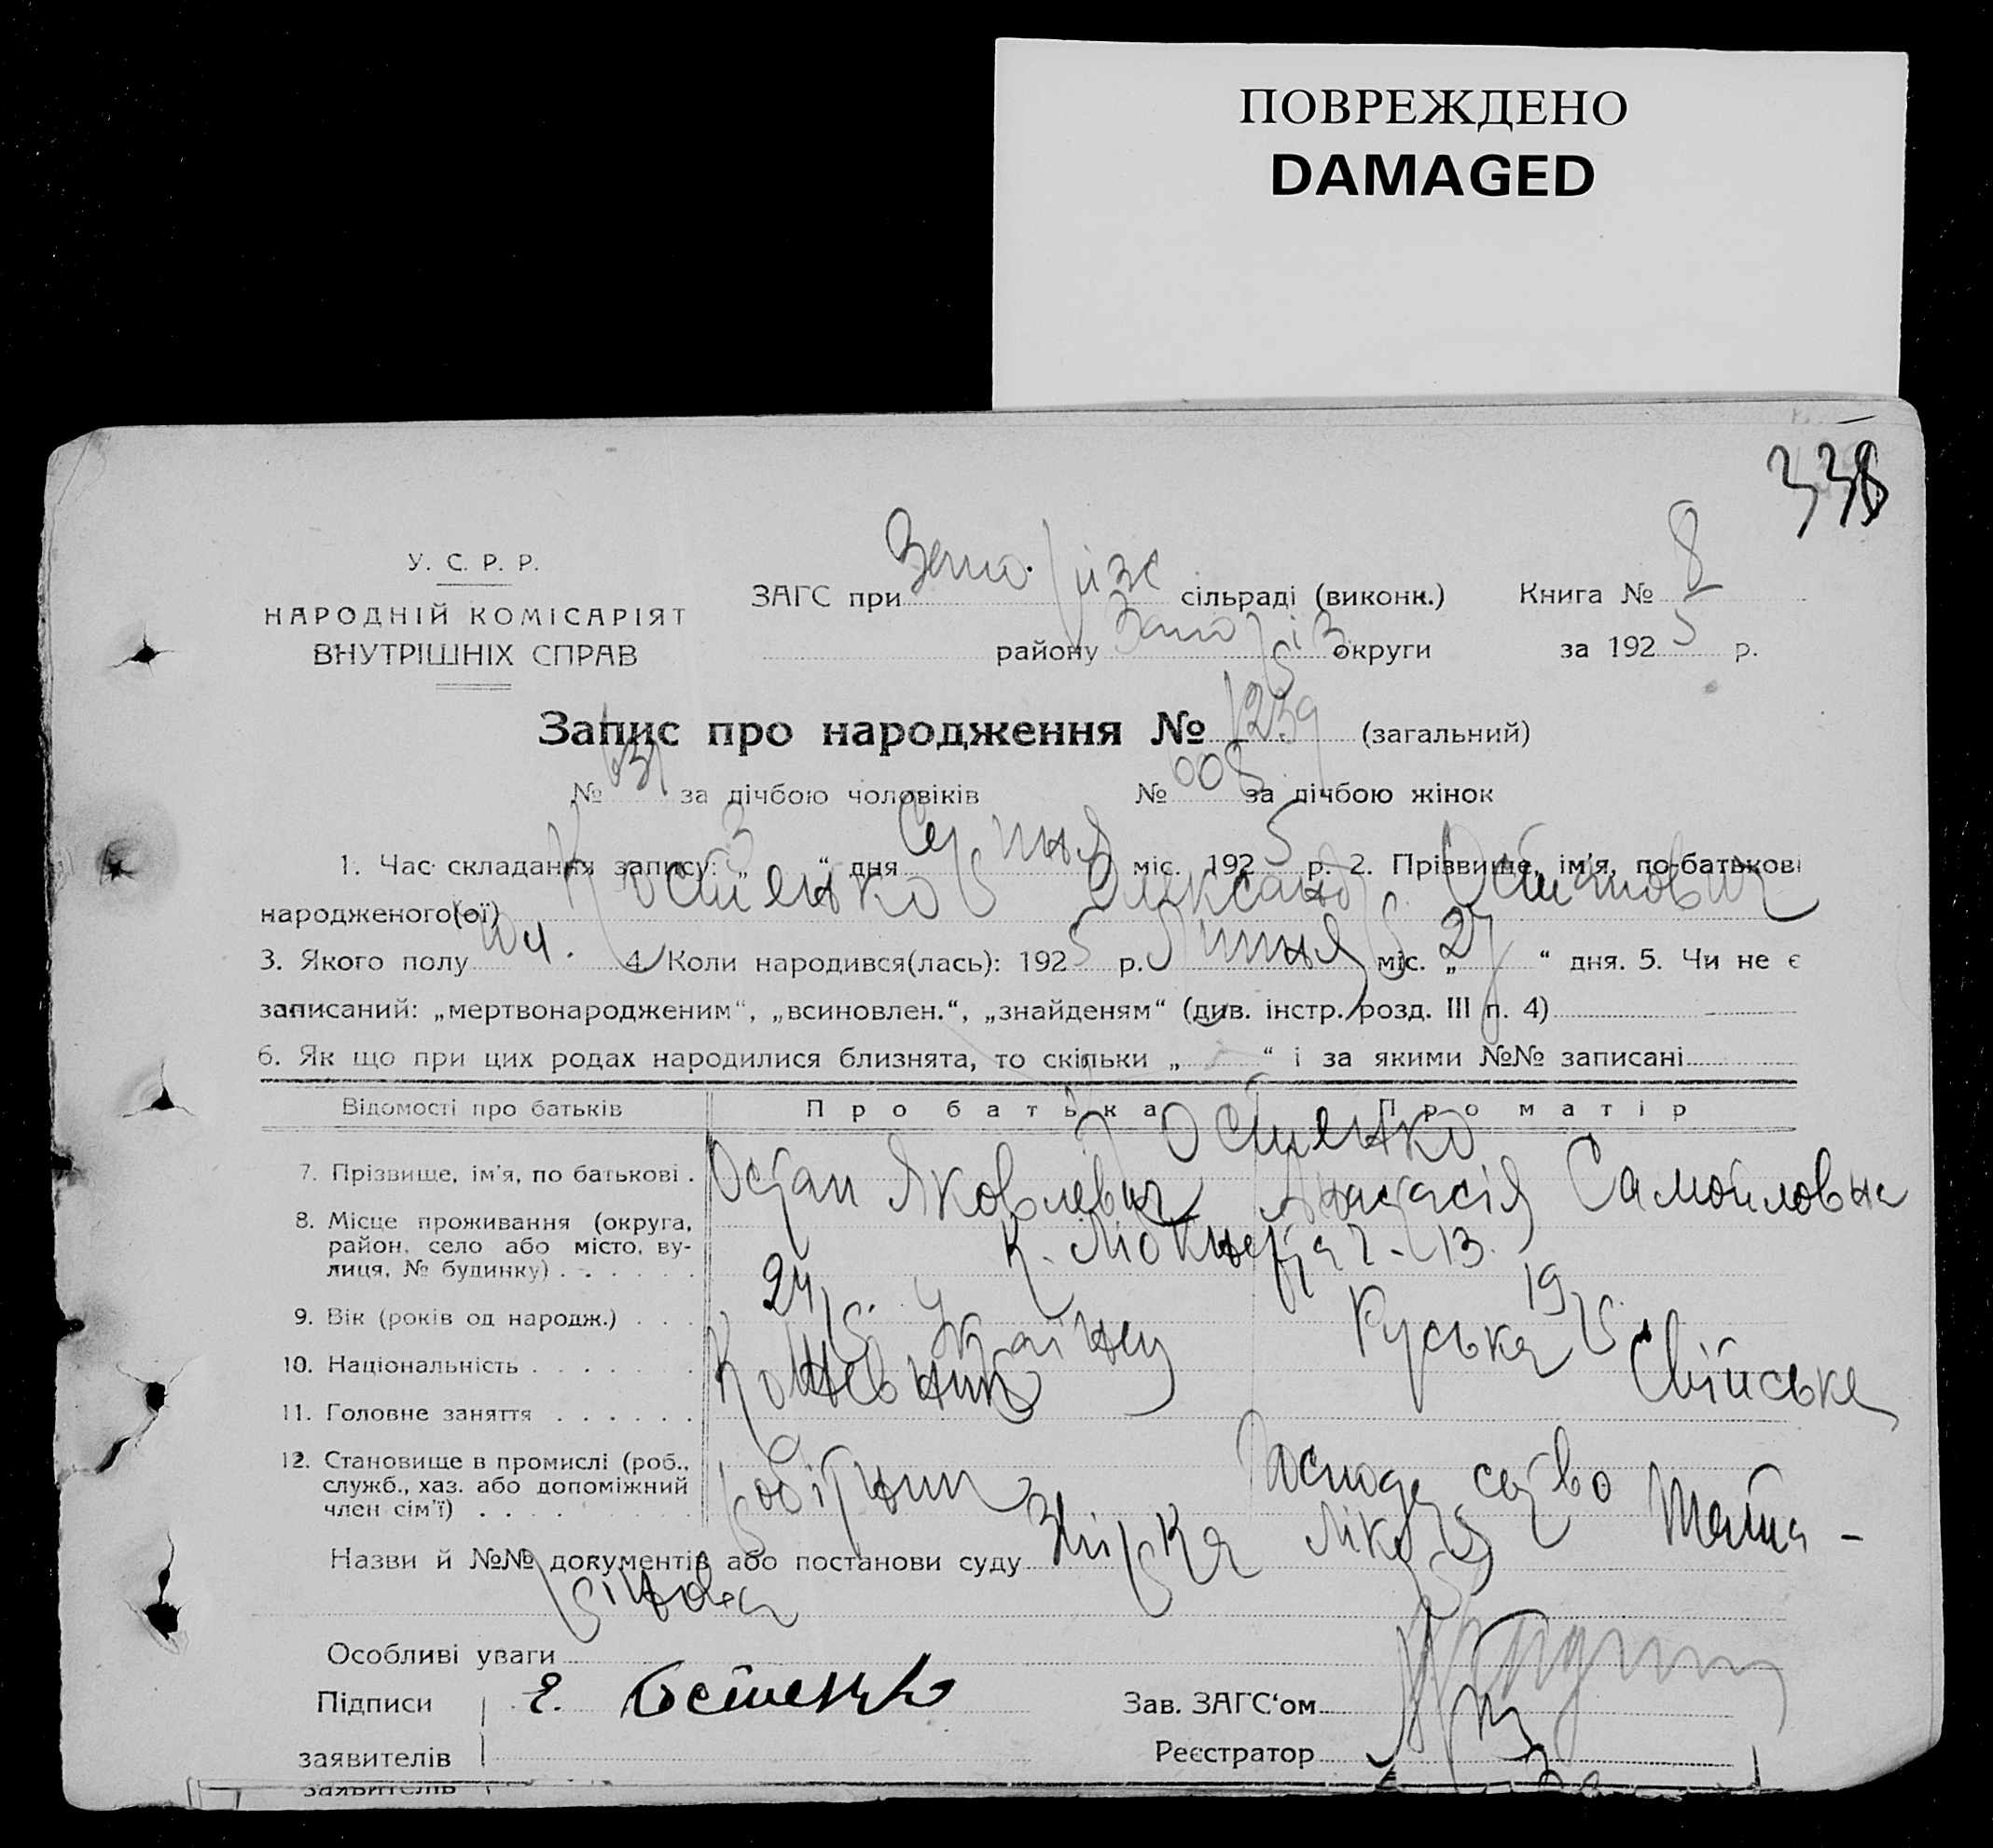 ПОВРЕЖДЕНО
DAMAGED
338
У. С. Р. Р.
НАРОДНІЙ КОМІСАРІЯТ
ВНУТРІШНІХ СПРАВ
ЗАГС при сільраді (виконк.) Книга № 8
району округи за 1925 р.
Запис про народження № 1239 (загальний)
№ 631 за лічбою чоловіків № 608 за лічбою жінок
1. Час складання запису: „3“ дня Серпня міс. 1925 р. 2. Прізвище, ім'я, по-батькові
народженого(ої) Костенко Олександр Остапович
3. Якого полу ч. 4. Коли народився(лась): 1925 р. Липня міс. „27“ дня. 5. Чи не є
записаний: „мертвонародженим“, „всиновлен.“, „знайденям“ (див. інстр. розд. III п. 4)
6. Як що при цих родах народилися близнята, то скільки „ “ і за якими №№ записані
Відомості про батьків Про батька Про матір
Костенко
7. Прізвище, ім'я, по батькові . Остап Яковлевич Анастасія Самойловна
8. Місце проживання (округа,
район, село або місто, ву-
лиця, № будинку) . . . . . . 13
9. Вік (років од народж.) . . . 24 р. 19 р.
10. Національність . . . . . . . Українец Руська
11. Головне заняття . . . . . . Свійське
12. Становище в промислі (роб.,
служб., хаз. або допоміжний
член сім'ї) . . . . Робітник Господарство
Назви й №№ документів або постанови суду
Особливі уваги
Підписи Костенко Зав. ЗАГС'ом
заявителів Реєстратор
заявителів